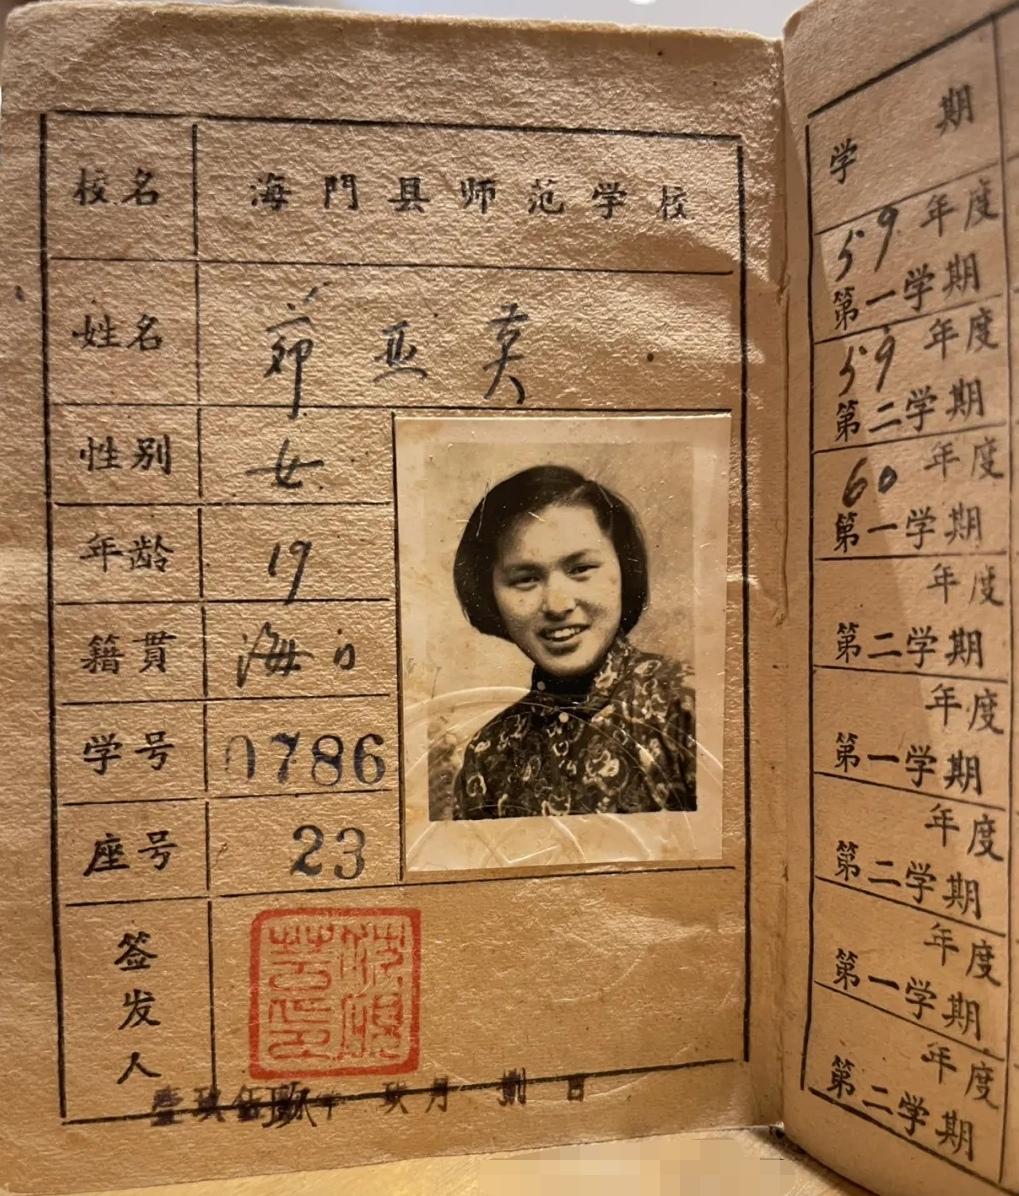 校名 海門县师范学校
姓名 亚英
性别 女
年龄 19
籍貫 海门
学号 0786
座号 23
签发人
壹玖伍玖年 玖月 捌日
学期
59年度
第一学期
59年度
第二学期
60年度
第一学期
年度
第二学期
年度
第一学期
年度
第二学期
年度
第一学期
年度
第二学期